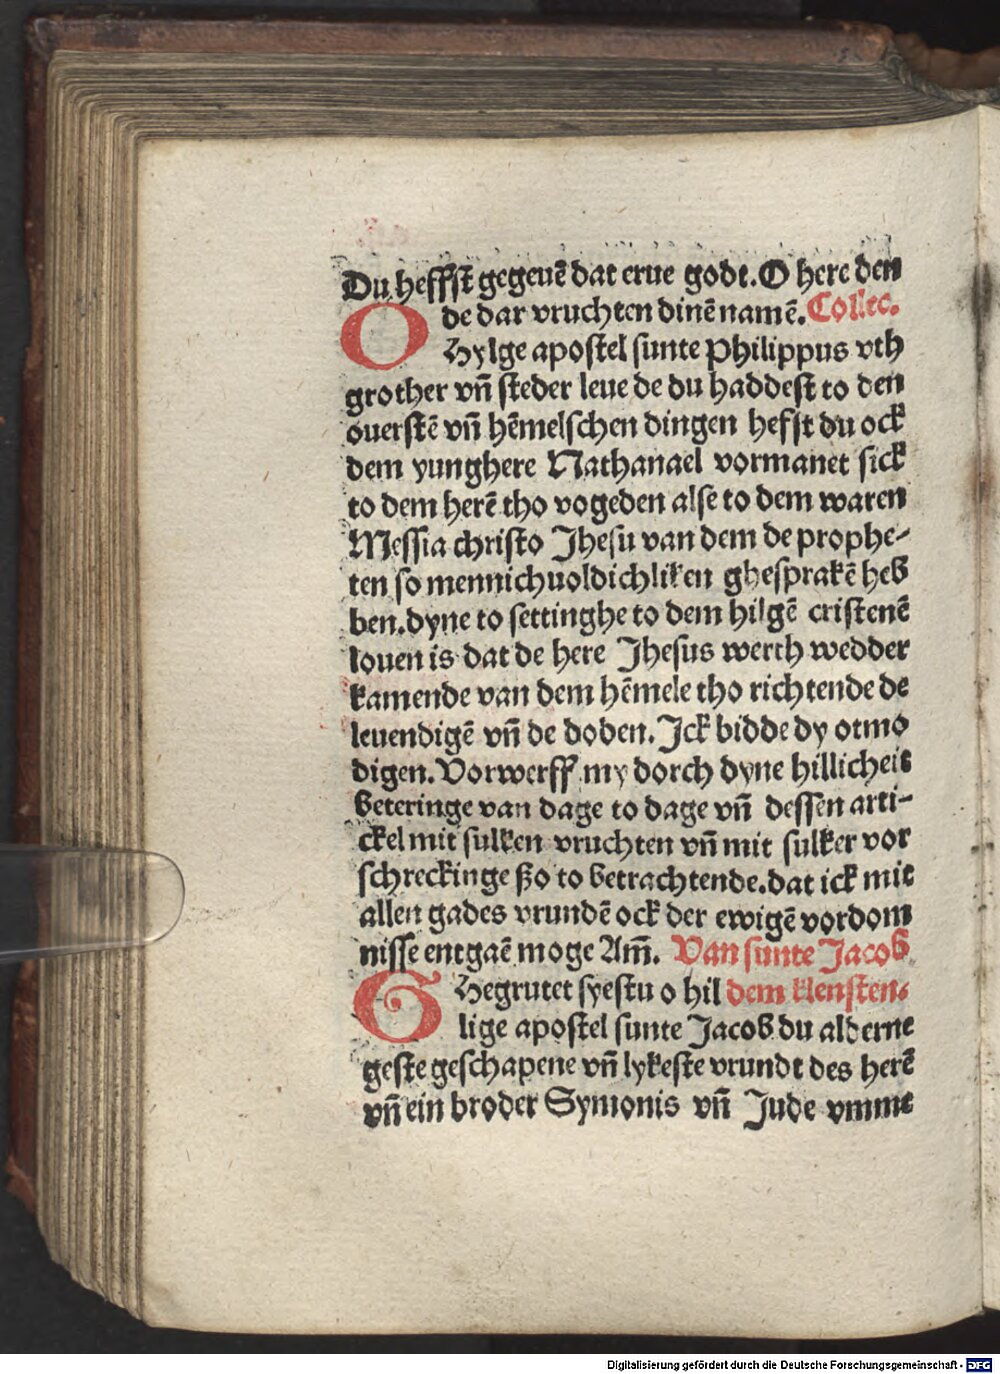 Du heffst gegeuē dat erue godt. O here den
de dar vruchten dinē namē. Collec.
O Hylge apostel sunte Philippus vth
grother vñ steder leue de du haddest to den
ouerstē vñ hēmelschen dingen hefst du ock
dem yunghere Nathanael vormanet sick
to dem herē tho vogeden alse to dem waren
Messia christo Jhesu van dem de prophe-
ten so mennichuoldichliken ghesprakē heb
ben. dyne to settinghe to dem hilgē cristenē
louen is dat de here Jhesus werth wedder
kamende van dem hēmele tho richtende de
leuendigē vñ de doden. Jck bidde dy otmo
digen. Vorwerff my dorch dyne hillicheit
beteringe van dage to dage vñ dessen arti-
ckel mit sulken vruchten vñ mit sulker vor
schreckinge ßo to betrachtende. dat ick mit
allen gades vrundē ock der ewigē vordom
nisse entgaē moge Am̄. Van sunte Jacob
GHegrutet syestu o hil dem klensten.
lige apostel sunte Jacob du alderne
geste geschapene vñ lykeste vrundt des herē
vñ ein broder Symonis vñ Jude vmme
Digitalisierung gefördert durch die Deutsche Forschungsgemeinschaft - DFG